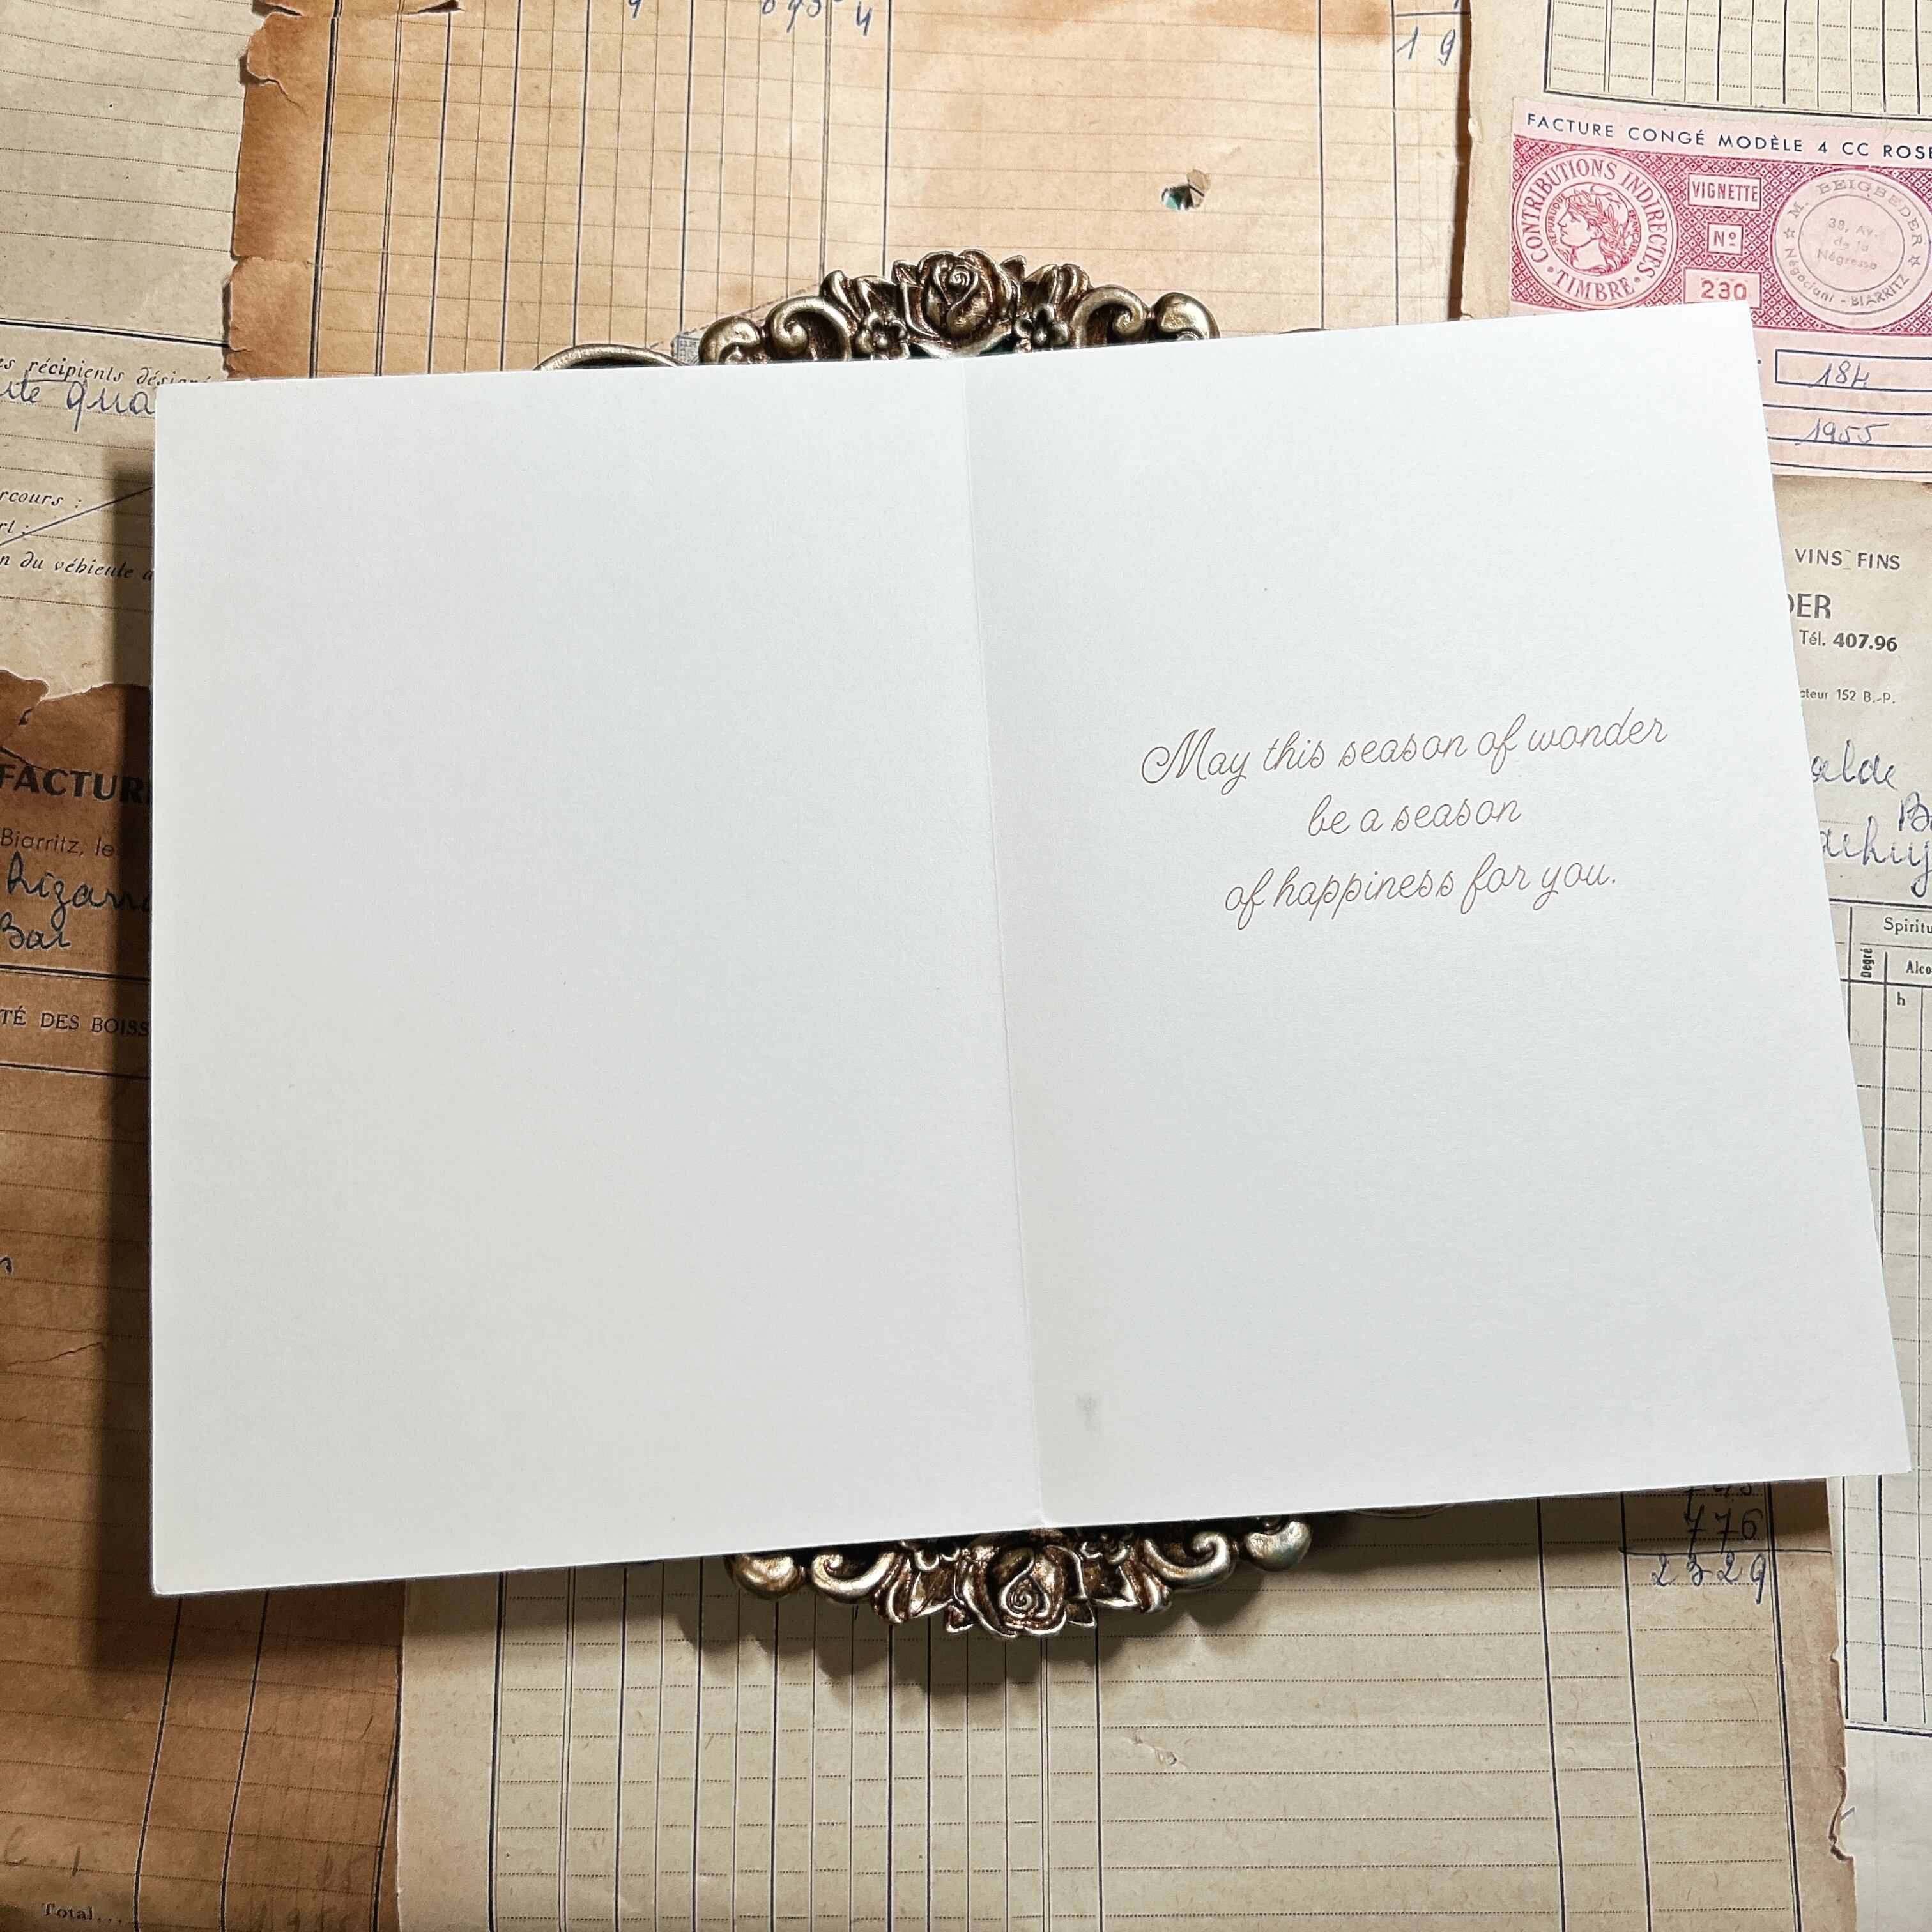 19
FACTURE CONGÉ MODÈLE 4 CC ROSE
CONTRIBUTIONS INDIRECTES
TIMBRE
VIGNETTE
Nº
230
M. BEIGBEDER
38, Av.
de la
Négresse
Négociant - BIARRITZ
184
1955
récipients
du véhicule
VINS FINS
Tél. 407.96
152 B.-P.
May this season of wonder
be a season
of happiness for you.
FACTUR
Biarritz, le
Bar
DES BOISS
Degré
h
776
2329
Total...